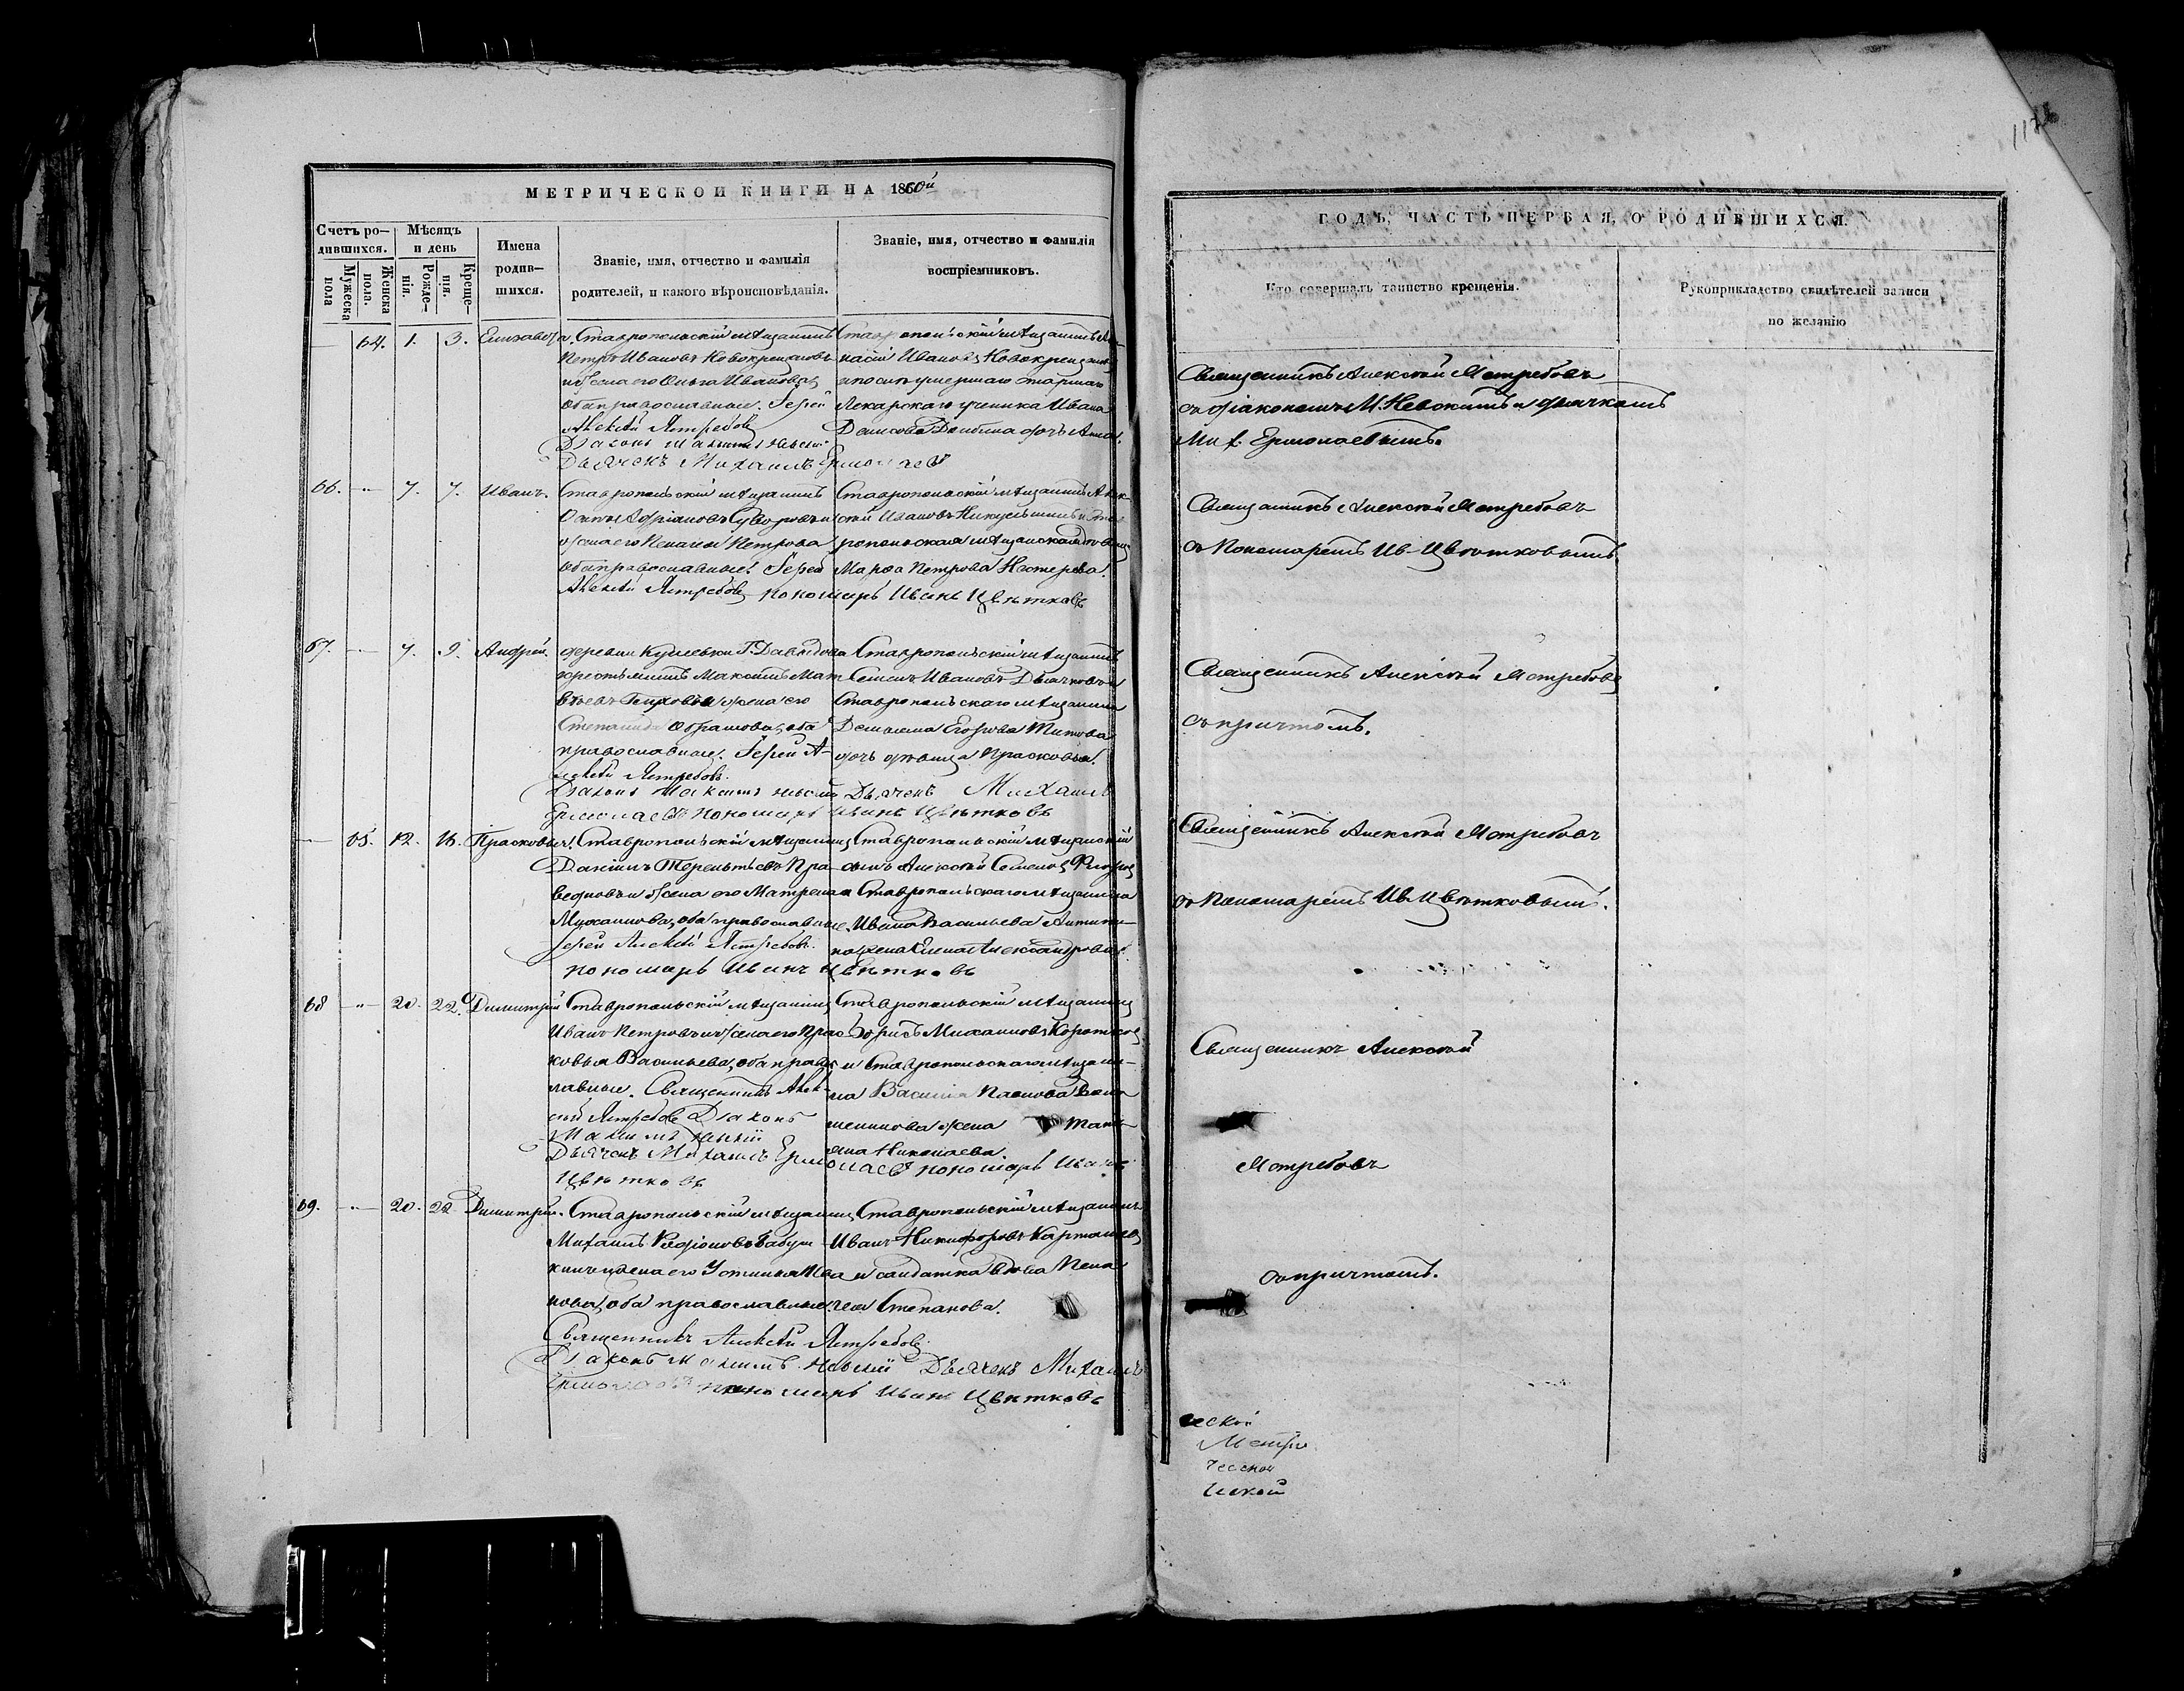 МЕТРИЧЕСКОЙ КНИГИ НА 1860й
Счетъ ро-
дившихся.
Мужеска
пола
Женска
пола.
Мѣсяцъ
и день
Рожде-
нія.
Креще-
нія.
Имена
родив-
шихся.
Званіе, имя, отчество и фамилія
родителей, и какого вѣроисповѣданія.
Званіе, имя, отчество и фамилія
воспріемниковъ.
64. 1. 3. Елизавета. Ставропольскій мѣщанинъ
Петръ Ивановъ Новокрещеновъ
и жена его Ольга Иванова,
оба православные. Іерей
Алексѣй Ястребовъ
Діаконъ Максимъ Невскій
Дьячекъ Михаилъ Ермолаевъ
Ставропольскій мѣщанинъ
Ивановъ Новокрещеновъ
умершаго
Лекарскаго ученика Ивана
Денисова дочь
66. 7. 7. Иванъ. Ставропольскій мѣщанинъ
Адріановъ Суворовъ и
жена его Пелагея Петрова
оба православные. Іерей
Алексѣй Ястребовъ пономарь Иванъ Цвѣтковъ
Ставропольскій мѣщанинъ Алек-
сѣй Ивановъ Никульшинъ и Став-
ропольская мѣщанская
Марѳа Петрова Нестерова.
67. 7. 9. Андрей. деревни Кунеевки Г. Давыдова
крестьянинъ Максимъ Мат-
вѣевъ Петровъ и жена его
Степанида Абрамова, оба
православные. Іерей А-
лексѣй Ястребовъ.
Діаконъ Максимъ Невскій Дьячекъ Михаилъ
Ермолаевъ пономарь Иванъ Цвѣтковъ
Ставропольскій мѣщанинъ
Семенъ Ивановъ Дьячковъ и
Ставропольскаго мѣщанина
Демьяна Егорова Титова
дочь дѣвица Прасковья.
65. 12. 16. Прасковья. Ставропольскій мѣщанинъ
Даніилъ Терентьевъ Пра-
ведновъ и жена его Матрена
Михайлова, оба православные.
Іерей Алексѣй Ястребовъ.
пономарь Иванъ Цвѣтковъ
Ставропольскій мѣщанскій
сынъ Алексѣй Семеновъ
и Ставропольскаго мѣщанина
Ивана Васильева
жена Елена Александрова.
68 20. 22. Димитрій Ставропольскій мѣщанинъ
Иванъ Петровъ и жена его Прас-
ковья Васильева, оба правос-
лавные. Священникъ Алек-
сѣй Ястребовъ Діаконъ
Максимъ Невскій
Дьячекъ Михаилъ Ермолаевъ пономарь Иванъ
Цвѣтковъ
Ставропольскій мѣщанинъ
Борисъ Михайловъ Коротковъ
и Ставропольскаго мѣщани-
на Василія Павлова
жена Тать-
яна Николаева.
69. 20. 22 Димитрій. Ставропольскій мѣщанинъ
Михаилъ Родіоновъ Бабуш-
кинъ и жена его Устинья Ива-
нова, оба православные.
Священникъ Алексѣй Ястребовъ.
Діаконъ Максимъ Невскій Дьячекъ Михаилъ
Ермолаевъ пономарь Иванъ Цвѣтковъ
Ставропольскій мѣщанинъ
Иванъ Никифоровъ Карташевъ
и солдатка вдова Пела-
гея Степанова.
ГОДЪ, ЧАСТЬ ПЕРВАЯ, О РОДИВШИХСЯ.
Кто совершалъ таинство крещенія.
Рукоприкладство свидѣтелей записи
по желанію
Священникъ Алексѣй Ястребовъ
съ діакономъ М. Невскимъ и дьячкомъ
Мих. Ермолаевымъ.
Священникъ Алексѣй Ястребовъ
съ Пономаремъ Ив. Цвѣтковымъ.
Священникъ Алексѣй Ястребовъ
съ причтомъ.
Священникъ Алексѣй Ястребовъ
съ Пономаремъ Ив. Цвѣтковымъ.
Священникъ Алексѣй
Ястребовъ
съ причтомъ.
ческой
Метри
ческой